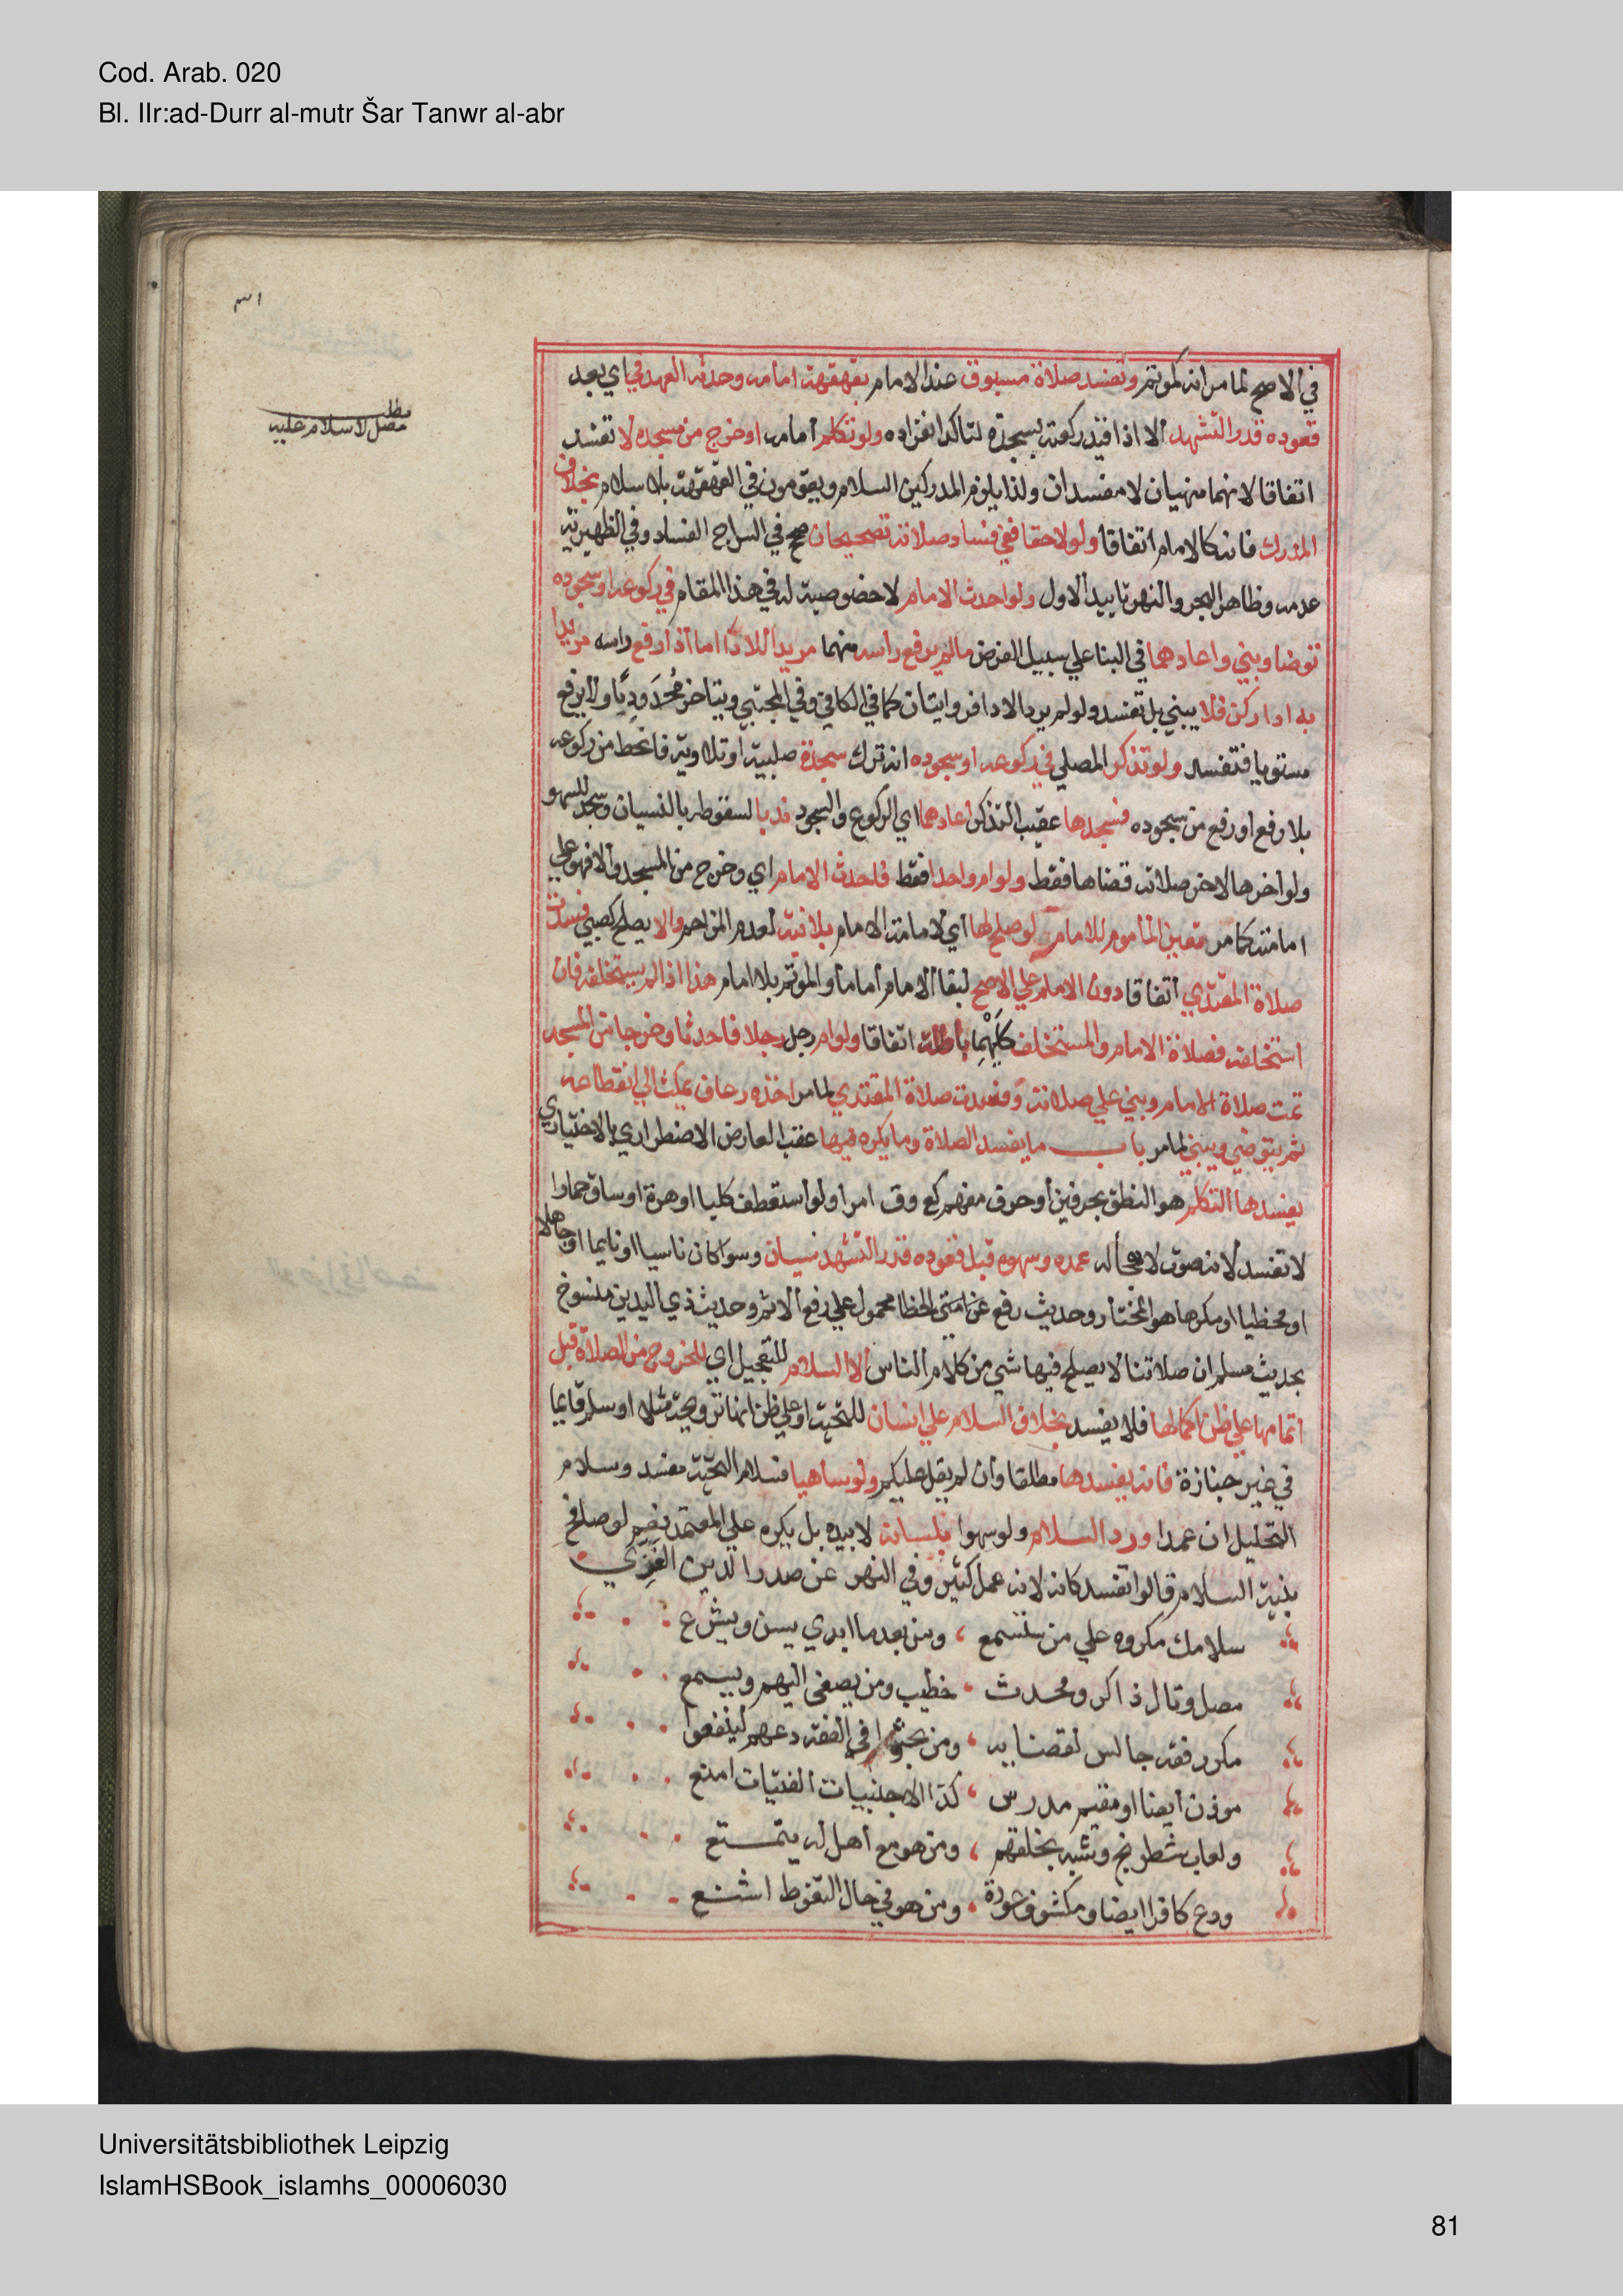 Cod. Arab. 020
Bl. IIr:ad-Durr al-mutr Šar Tanwr al-abr
مطلـ
مصل لا سلام عليه
في الاصح لما مر انه كموتم وتفسد صلاة مسبوق عند الامام بقهقهة امامه وحدثه العمد في اي بعد
قعوده قدر التشهد الا اذا قيد ركعته بسجدة لتاكد انفراده ولو تكلم امامه او خرج من مسجده لا تفسد
اتفاقا لانهما منهيان لا مفسدان ولذا يلزم المدركين السلام ويقومون في القهقهة بلا سلام بخلاف
المدرك فانه كالامام اتفاقا ولو لاحقا ففي فساد صلاته تصحيحان صحح في السراج الفساد وفي الظهيرية
عدمه وظاهر البحر والنهر تاييد الاول ولو احدث الامام لا خصوصية له في هذا المقام في ركوعه او سجوده
توضا وبني واعادهما في البنا علي سبيل الفرض مالم يرفع راسه منهما مريدا للادا اما اذا رفع راسه مريدا
به ادا ركن فلا يبني بل تفسد ولو لم يرد الادا فروايتان كما في الكافي وفي المجتبي ويتاخر مُحْدَودِبًا ولا يرفع
مستويا فتفسد ولو تذكر المصلي في ركوعه او سجوده انه ترك سجدة صلبية او تلاوية فانحط من ركوعه
بلا رفع او رفع من سجوده فسجدها عقب التذكر اعادهما اي الركوع والسجود ندبا لسقوطه بالنسيان وسجد للسهو
ولو اخرها لاخر صلاته قضاها فقط ولو ام واحدا فقط فاحدث الامام اي وخرج من المسجد والا فهو علي
امامته كما مر تعين الماموم للامامة لو صلح لها اي لامامة الامام بلا نية لعدم المزاحم والا يصلح كصبي فسدت
صلاة المقتدي اتفاقا دون الامام علي الاصح لبقا الامام اماما والموتم بلا امام هذا اذا لم يستخلفه فان
استخلفه فصلاة الامام والمستخلف كليهما باطلة اتفاقا ولو ام رجل رجلا فاحدثا وخرجا من المسجد
تمت صلاة الامام وبني علي صلاته وفسدت صلاة المقتدي لما مر اخذه رعاف يمكث الي انقطاعه
ثم يتوضي ويبني لما مر باب ما يفسد الصلاة وما يكره فيها عقب العارض الاضطراري بالاختياري
يفسدها التكلم هو النطق بحرفين او حرف مفهم كع وق امرا ولو استعطف كلبا او هرة او ساق حمارا
لا تفسد لانه صوت لا هجا له عمده وسهوه قبل قعوده قدر التشهد سيان وسوا كان ناسيا او نايما او جاهلا
او مخطيا او مكرها هو المختار وحديث رفع عن امتي الخطا محمول علي رفع الاثم وحديث ذي اليدين منسوخ
بحديث مسلم ان صلاتنا لا يصلح فيها شي من كلام الناس الا السلام للتعجيل اي للخروج من الصلاة قبل
اتمامها علي ظن اكمالها فلا يفسد بخلاف السلام علي انسان للتحية او علي ظن انها ترويحة مثلا او سلم قايما
في غير جنازة فانه يفسدها مطلقا وان لم يقل عليكم ولو ساهيا فسلام التحية مفسد وسلام
التحليل ان عمدا ورد السلام ولو سهوا بلسانه لا بيده بل يكره علي المعتمد نعم لو صافح
بنية السلام قالوا تفسد كانه لانه عمل كثير وفي النهر عن صدر الدين الغزي
سلامك مكروه علي من ستسمع ، ومن بعد ما ابدي يسن ويشرع
مصل وتال ذاكر ومحدث ، خطيب ومن يصغي اليهم ويسمع
مكرر فقه جالس لقضايه ، ومن بحثوا في الفقه دعهم لينفعوا
موذن ايضا او مقيم مدرس ، كذا الاجنبيات الفتيات امنع
ولعاب شطرنج وشبه بخلقهم ، ومن هو مع اهل له يتمتع
ودع كافرا ايضا ومكشوف عورة ، ومن هو في حال التغوط اشنع
Universitätsbibliothek Leipzig
IslamHSBook_islamhs_00006030
81